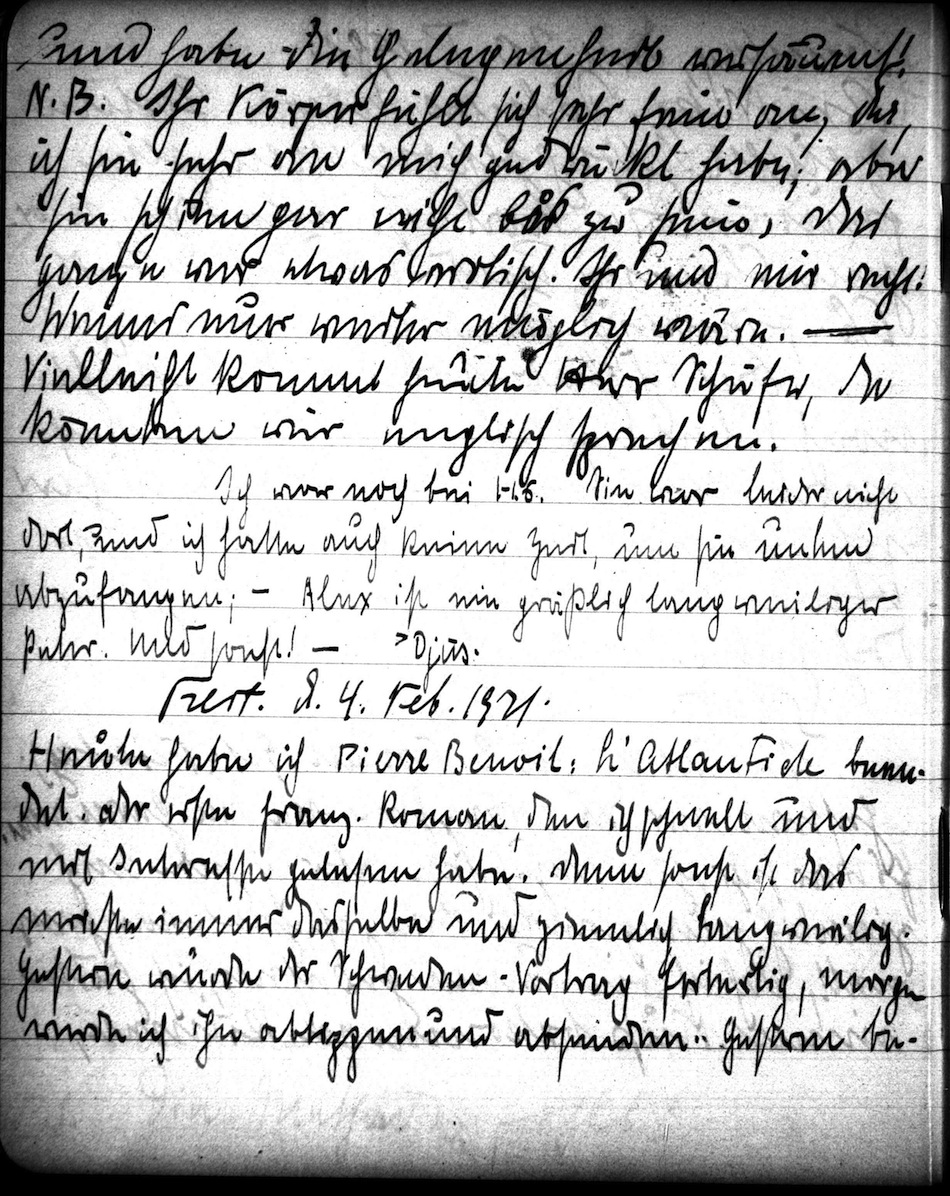 und habe die Gelegenheit versäumt!
N.B. Ihr Körper fühlt sich sehr fein an, da
ich sie sehr an mich gedrückt habe; aber
sie schien gar nicht bös zu sein, das
ganze war etwas erotisch. Ihr und mir recht.
Wenns nur weiter möglich wäre. —
Vielleicht kommt heute Herr Schäfer, da
könnten wir englisch sprechen.
Ich war noch bei Hs. Sie war leider nicht
dort, und ich hatte auch keine Zeit, um sie unten
abzufangen; – Alex ist ein gräßlich langweiliger
Peter. Und sonst! – Djus.
Frest. d. 4. Feb. 1921.
Heute habe ich Pierre Benoit: L'Atlantide been-
det. der erste franz. Roman, den ich schnell und
mit Interesse gelesen habe. denn sonst ist das
meiste immer dasselbe und ziemlich langweilig.
Gestern wurde der Schweden-Vortrag fertig, morgen
werde ich ihn abtippen und absenden. Gestern be-